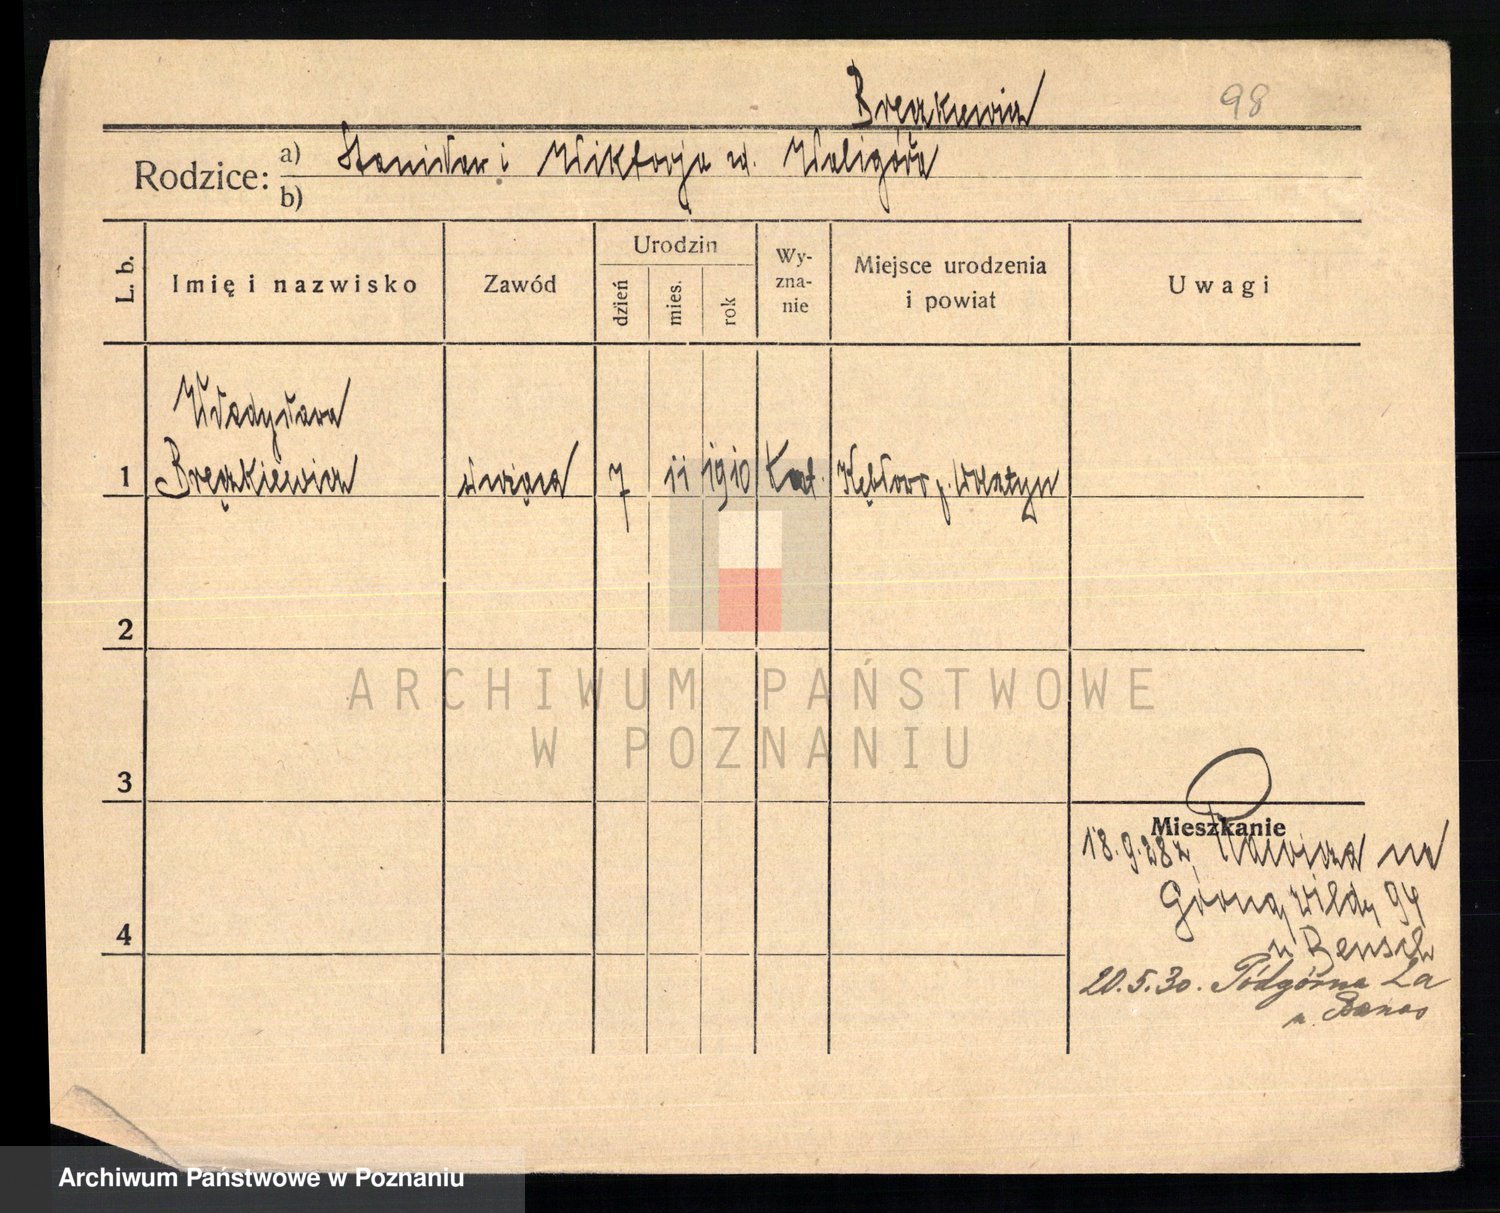 Bręczkiewicz
98
Rodzice: a) Stanisław i Wiktorja ur. Waligóra
b)
L. b.
Imię i nazwisko
Zawód
Urodzin
dzień
mies.
rok
Wy-
zna-
nie
Miejsce urodzenia
i powiat
Uwagi
Władysława
1 Bręczkiewicz służąca 7 11 1910 Kat. Kębłowo p. Wolsztyn
2
3
4
Mieszkanie
18.9.28 z Rawicza na
Górną Wildę 94
u Bensch
20.5.30. Podgórna 2a
u.
ARCHIWUM PAŃSTWOWE
W POZNANIU
Archiwum Państwowe w Poznaniu